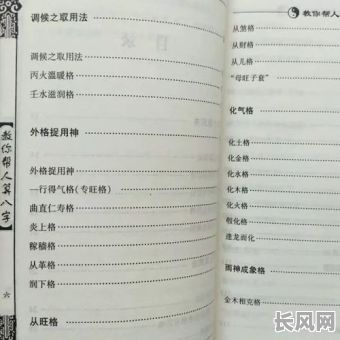 调候之取用法
调候之取用法
丙火温暖格
壬水滋润格
外格捉用神
外格捉用神
一行得气格(专旺格)
曲直仁寿格
炎上格
稼穑格
从革格
润下格
从旺格
教你帮人算八字
六
教你帮人
从煞格
从财格
从儿格
“母旺子衰”
化气格
化土格
化金格
化水格
化木格
化火格
假化格
逢龙而化
两神成象格
金木相克格
长风网